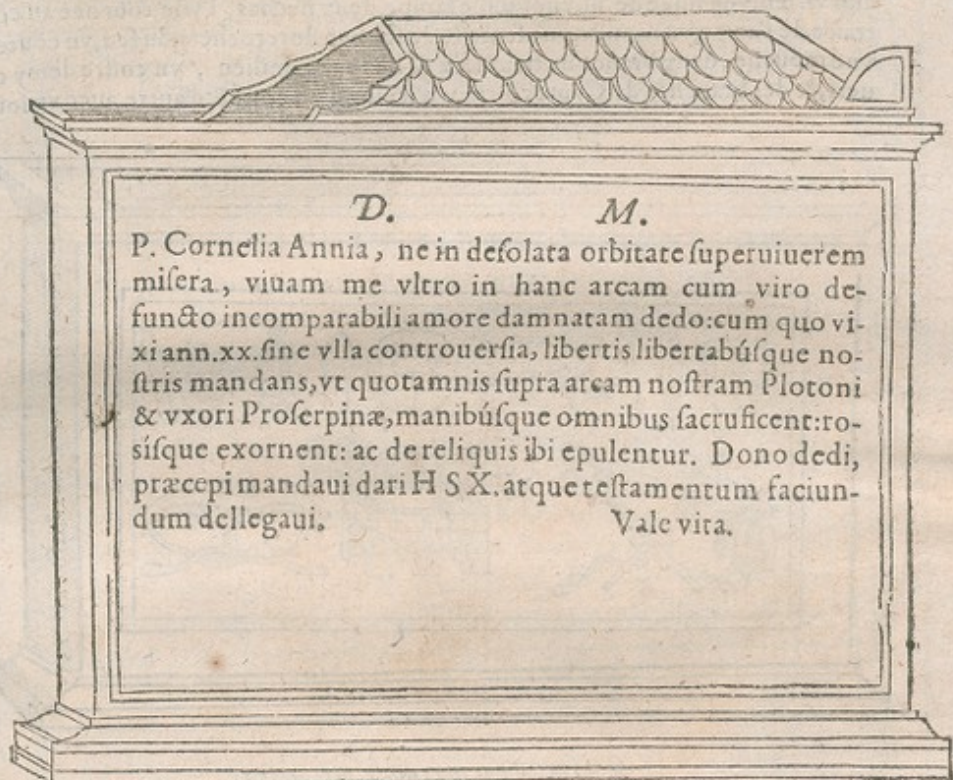 D. M.
P. Cornelia Annia, ne in desolata orbitate superuiuerem
misera, viuam me vltro in hanc arcam cum viro de-
functo incomparabili amore damnatam dedo:cum quo vi-
xi ann.xx.sine vlla controuersia, libertis libertabúsque no-
stris mandans,vt quotamnis supra arcam nostram Plotoni
& vxori Proserpinæ,manibúsque omnibus sacruficent:ro-
sísque exornent: ac de reliquis ibi epulentur. Dono dedi,
præcepi mandaui dari H S X.atque testamentum faciun-
dum dellegaui. Vale vita.